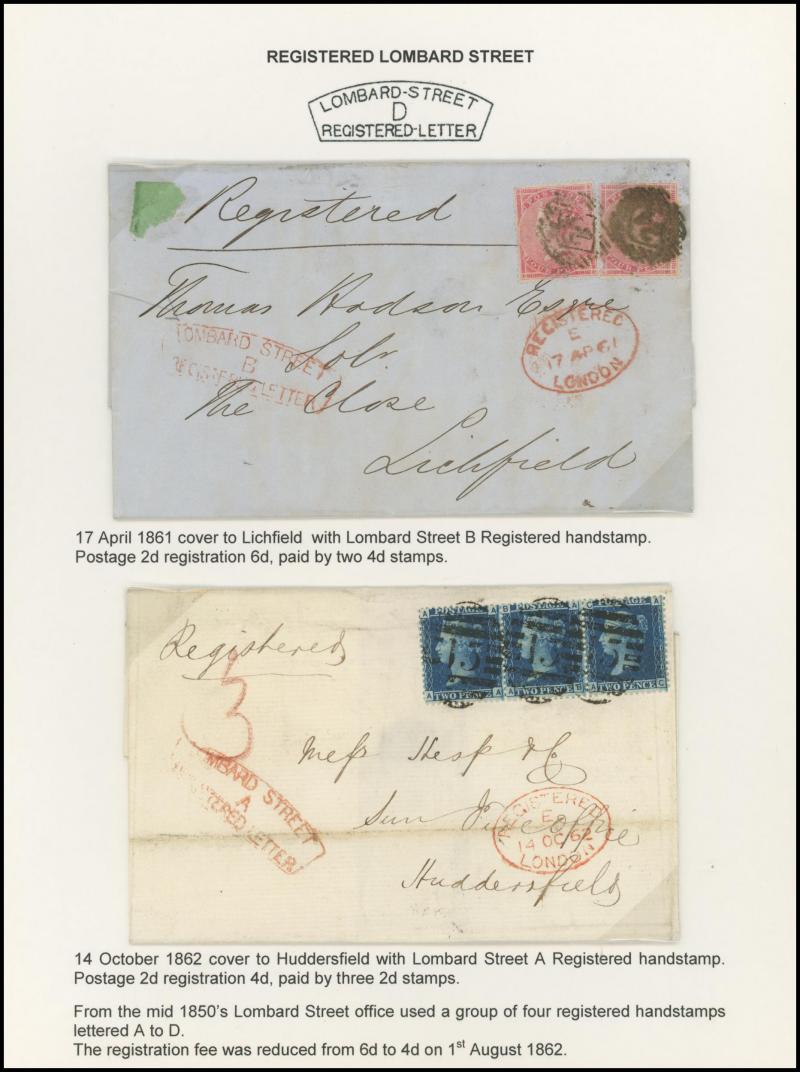 REGISTERED LOMBARD STREET
LOMBARD-STREET
D
REGISTERED-LETTER
Registered
FOUR PENCE
FOUR PENCE
Thomas Hodson Esqre
REGISTERED
E
17 AP 61
LONDON
LOMBARD STREET
B
REGISTERED LETTER
Solr
The Close
Lichfield
17 April 1861 cover to Lichfield with Lombard Street B Registered handstamp.
Postage 2d registration 6d, paid by two 4d stamps.
A POSTAGE A
B POSTAGE A
C POSTAGE A
A TWO PENCE A
A TWO PENCE B
A TWO PENCE C
Registered
3
LOMBARD STREET
A
REGISTERED LETTER
Messrs Hesp & Co
Sun Fire Office
REGISTERED
14 OC 62
LONDON
Huddersfield
14 October 1862 cover to Huddersfield with Lombard Street A Registered handstamp.
Postage 2d registration 4d, paid by three 2d stamps.
From the mid 1850's Lombard Street office used a group of four registered handstamps
lettered A to D.
The registration fee was reduced from 6d to 4d on 1st August 1862.